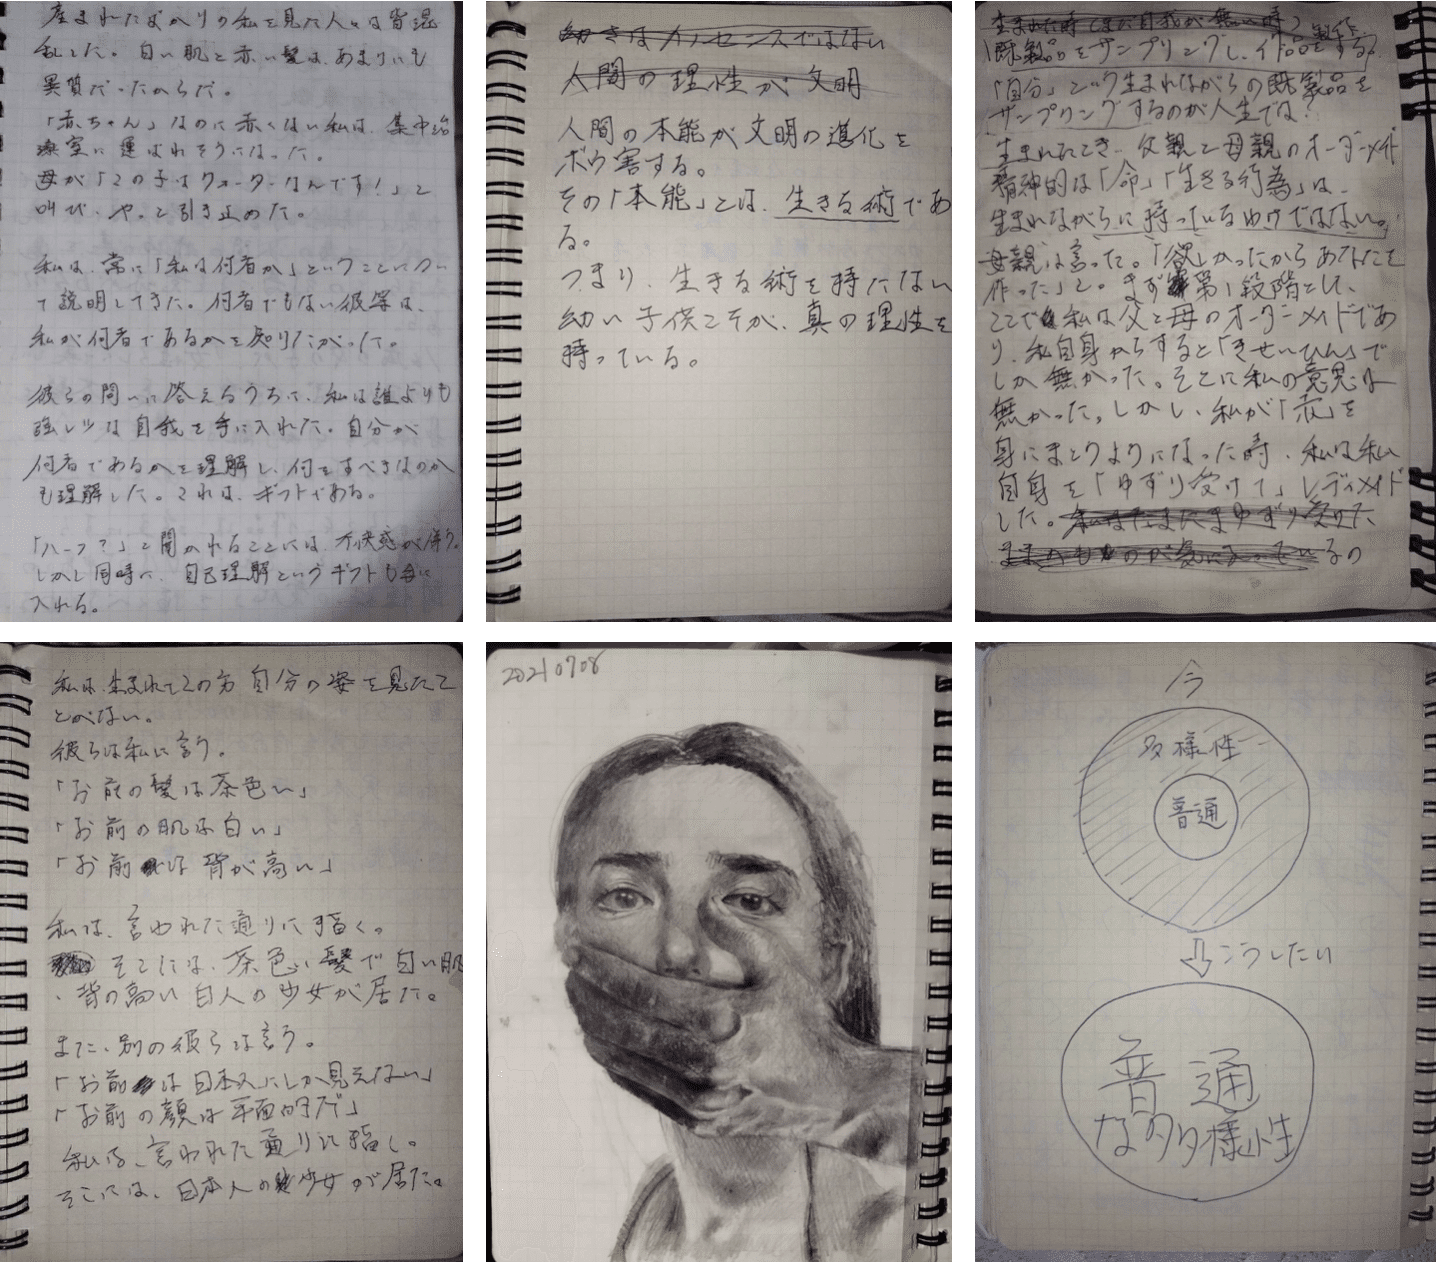 産まれたばかりの私を見た人々は皆混
乱した。白い肌と赤い髪は、あまりにも
異質だったからだ。
「赤ちゃん」なのに赤くない私は、集中治
療室に運ばれそうになった。
母が「この子はクォーターなんです!」と
叫び、やっと引き止めた。
私は、常に「私は何者か」ということについ
て説明してきた。何者でもない彼等は、
私が何者であるかを知りたがった。
彼らの問いに答えるうちに、私は誰よりも
強レツな自我を手に入れた。自分が
何者であるかを理解し、何をすべきなのか
も理解した。これは、ギフトである。
「ハーフ?」と聞かれることには、不快感が伴う。
しかし同時に、自己理解というギフトも手に
入れる。
幼さはナンセンスではない
人間の理性が文明
人間の本能が文明の進化を
ボウ害する。
その「本能」とは、生きる術であ
る。
つまり、生きる術を持たない
幼い子供こそが、真の理性を
持っている。
生まれた時(まだ自我が無い時)
既製品をサンプリングし、作品を製作する
「自分」という生まれながらの既製品を
サンプリングするのが人生では?
生まれたとき、父親と母親のオーダーメイド
精神的な「命」「生きる行為」は、
生まれながらに持っているわけではない。
母親は言った。「欲しかったからあなたを
作った」と。まず第1段階として、
ここで私は父と母のオーダーメイドであ
り、私自身からすると「きせいひん」で
しか無かった。そこに私の意思は
無かった。しかし、私が「赤」を
身にまとうようになった時、私は私
自身を「ゆずり受けて」レディメイド
した。
の
私は、生まれてこの方自分の姿を見たこ
とがない。
彼らは私に言う。
「お前の髪は茶色い」
「お前の肌は白い」
「お前は背が高い」
私は、言われた通りに描く。
そこには、茶色い髪で白い肌
、背の高い白人の少女が居た。
また、別の彼らは言う。
「お前は日本人にしか見えない」
「お前の顔は平面的だ」
私は、言われた通りに描く。
そこには、日本人の少女が居た。
20210708
今
多様性
普通
こうしたい
普通
な多様性